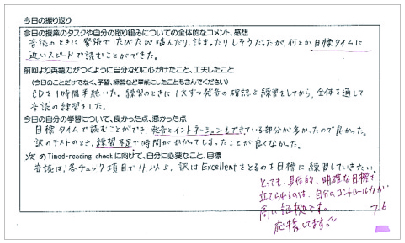 今日の振り返り
今日の授業のタスクや自分の取り組みについての全体的なコメント、感想
音読のときに緊張でたびたび噛んだり、詰まったりしそうだったが何とか目標タイムに
近いスピードで読むことができた。
前回より英語力がつくように自分なりに心がけたこと、工夫したこと
（今日のことだけでなく、予習、復習など事前にしたこともかいてください）
CDを1時間半聴いた。練習のときに1文ずつ発音の確認と練習をしてから、全体を通して
音読の練習をした。
今日の自分の学習について、良かった点、悪かった点
目標タイムで読むことができ、発音とイントネーションもできている部分が多かったので良かった。
訳のテストのとき、練習不足で時間がかかってしまったことが良くなかった。
次のTimed-reading checkに向けて、自分に必要なこと、目標
音読は、各チェック項目で4以上、訳はExcellentをとるのを目標に練習していきたい
とっても、具体的、明確な目標を
立てられるのは、自分のコントロール力が
高い証拠です。
応援してます。
7.6